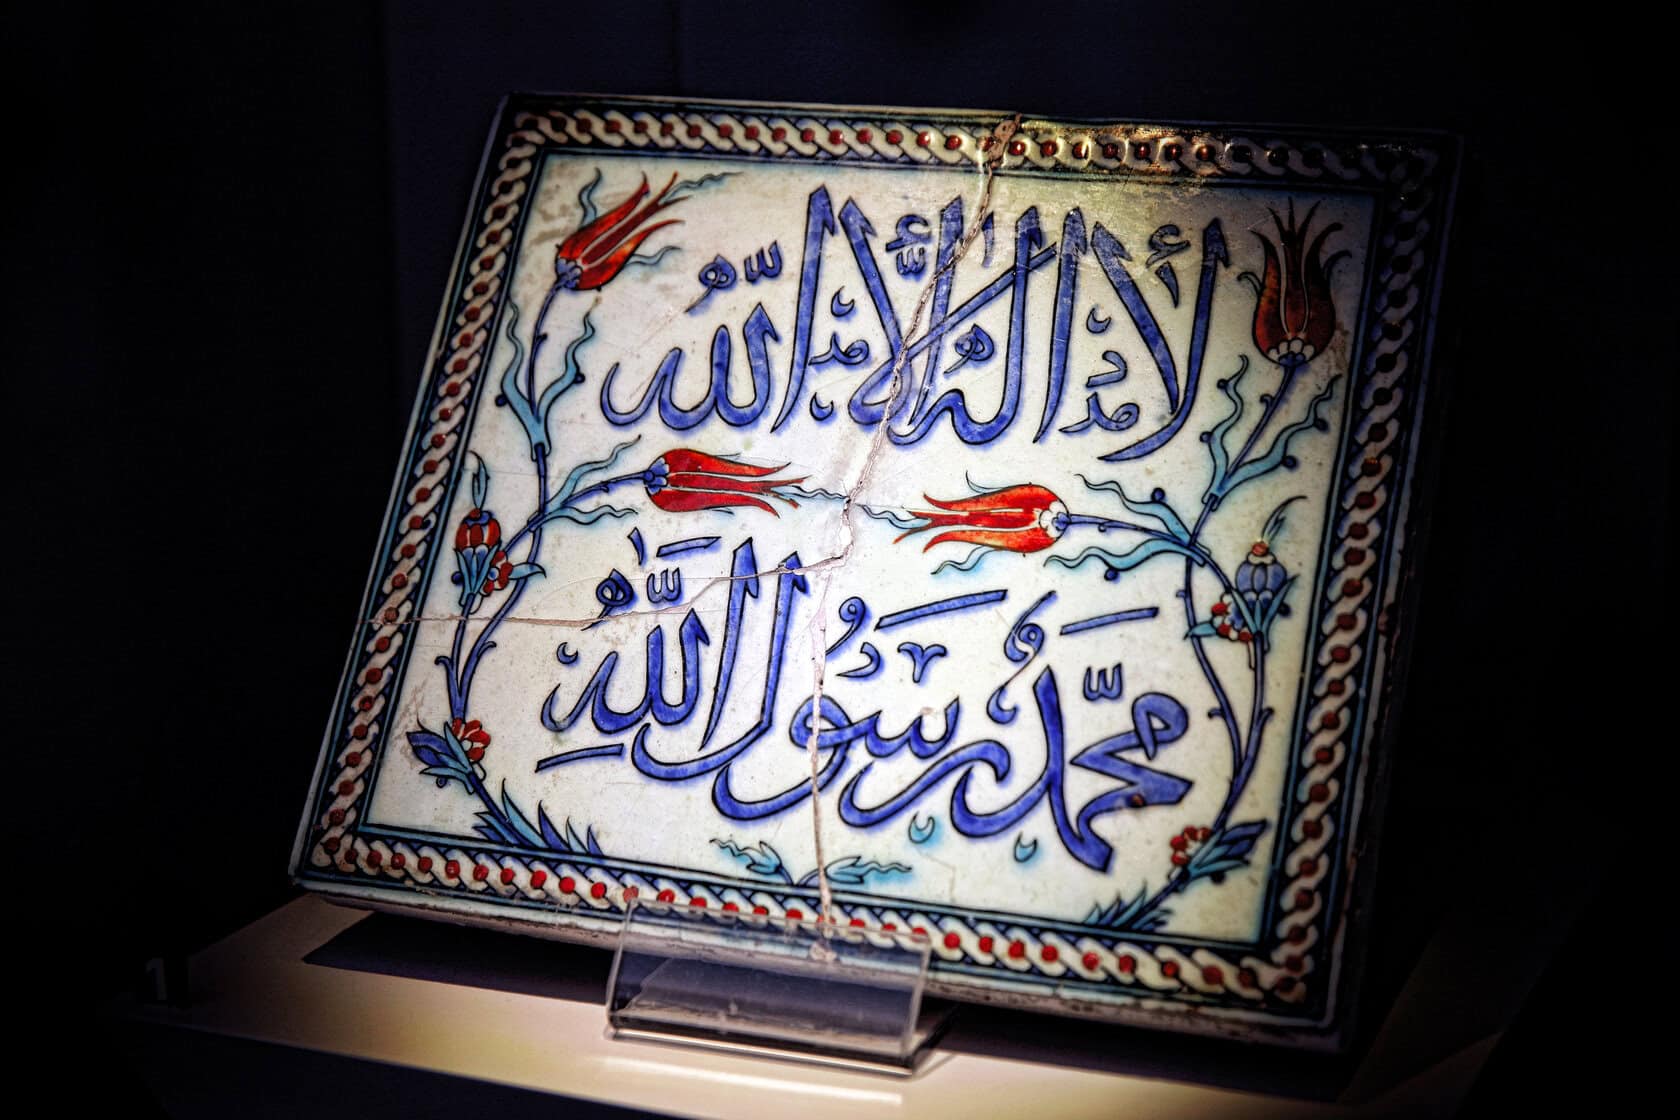 لا اله الا الله
محمد رسول الله
1